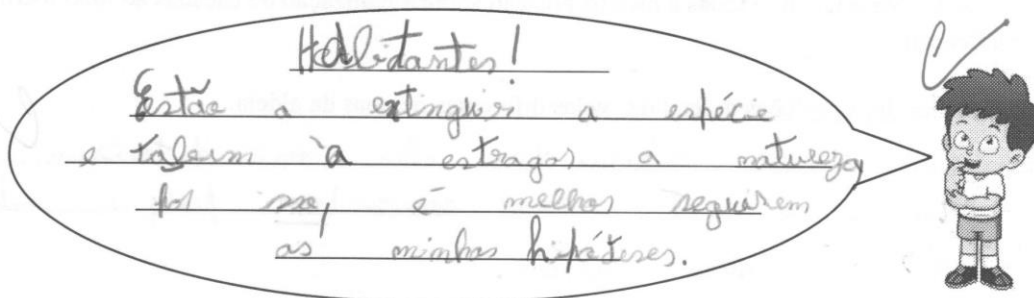 Habitantes!
Estão a extinguir a espécie
e taleim à estragar a natureza,
por isso, é melhor seguirem
as minhas hipóteses.